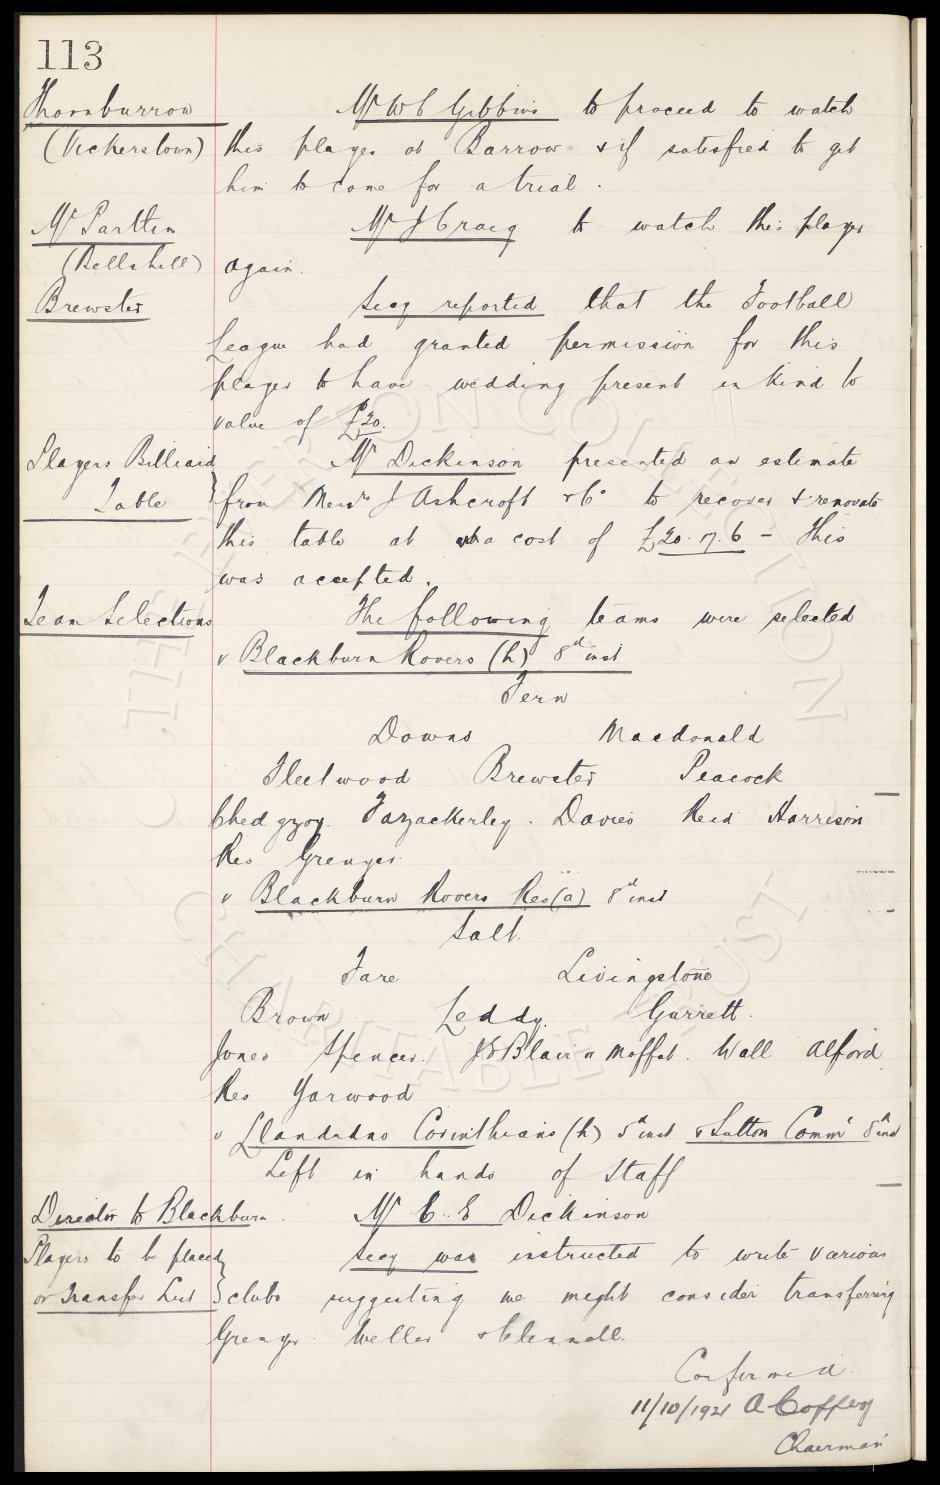 113
Thornburrow Mr W C Gibbins to proceed to watch
(Vickerstown) this player at Barrow & if satisfied to get
him to come for a trial.
Mc Parttin Mr J Craig to watch this player
(Bellshill) again.
Brewster Secy reported that the Football
League had granted permission for this
player to have wedding present in kind to
value of £20.
Players Billiard Mr Dickinson presented an estimate
Table from Messrs J Ashcroft & Co to recover & renovate
this table at a cost of £20.17.6 – This
was accepted.
Team Selections The following teams were selected
v Blackburn Rovers (h) 8th inst
Fern
Downs Macdonald
Fleetwood Brewster Peacock
Chedgzoy. Fazackerley. Davies Reid Harrison
Res Grenyer
v Blackburn Rovers Res (a) 8th inst
Salt.
Fare Livingstone
Brown Leddy. Garrett.
Jones Spencer. Blair or Moffat. Wall Alford
Res Yarwood
v Llandudno Corinthians (h) 5th inst & Sutton Comml 8th inst
Left in hands of Staff
Director to Blackburn. Mr C. E Dickinson
Players to be placed Secy was instructed to write various
on Transfer List clubs suggesting we might consider transferring
Grenyer Weller & Clennell.
Confirmed.
11/10/1921 A Coffey
Chairman
THE EVERTON COLLECTION
CHARITABLE TRUST